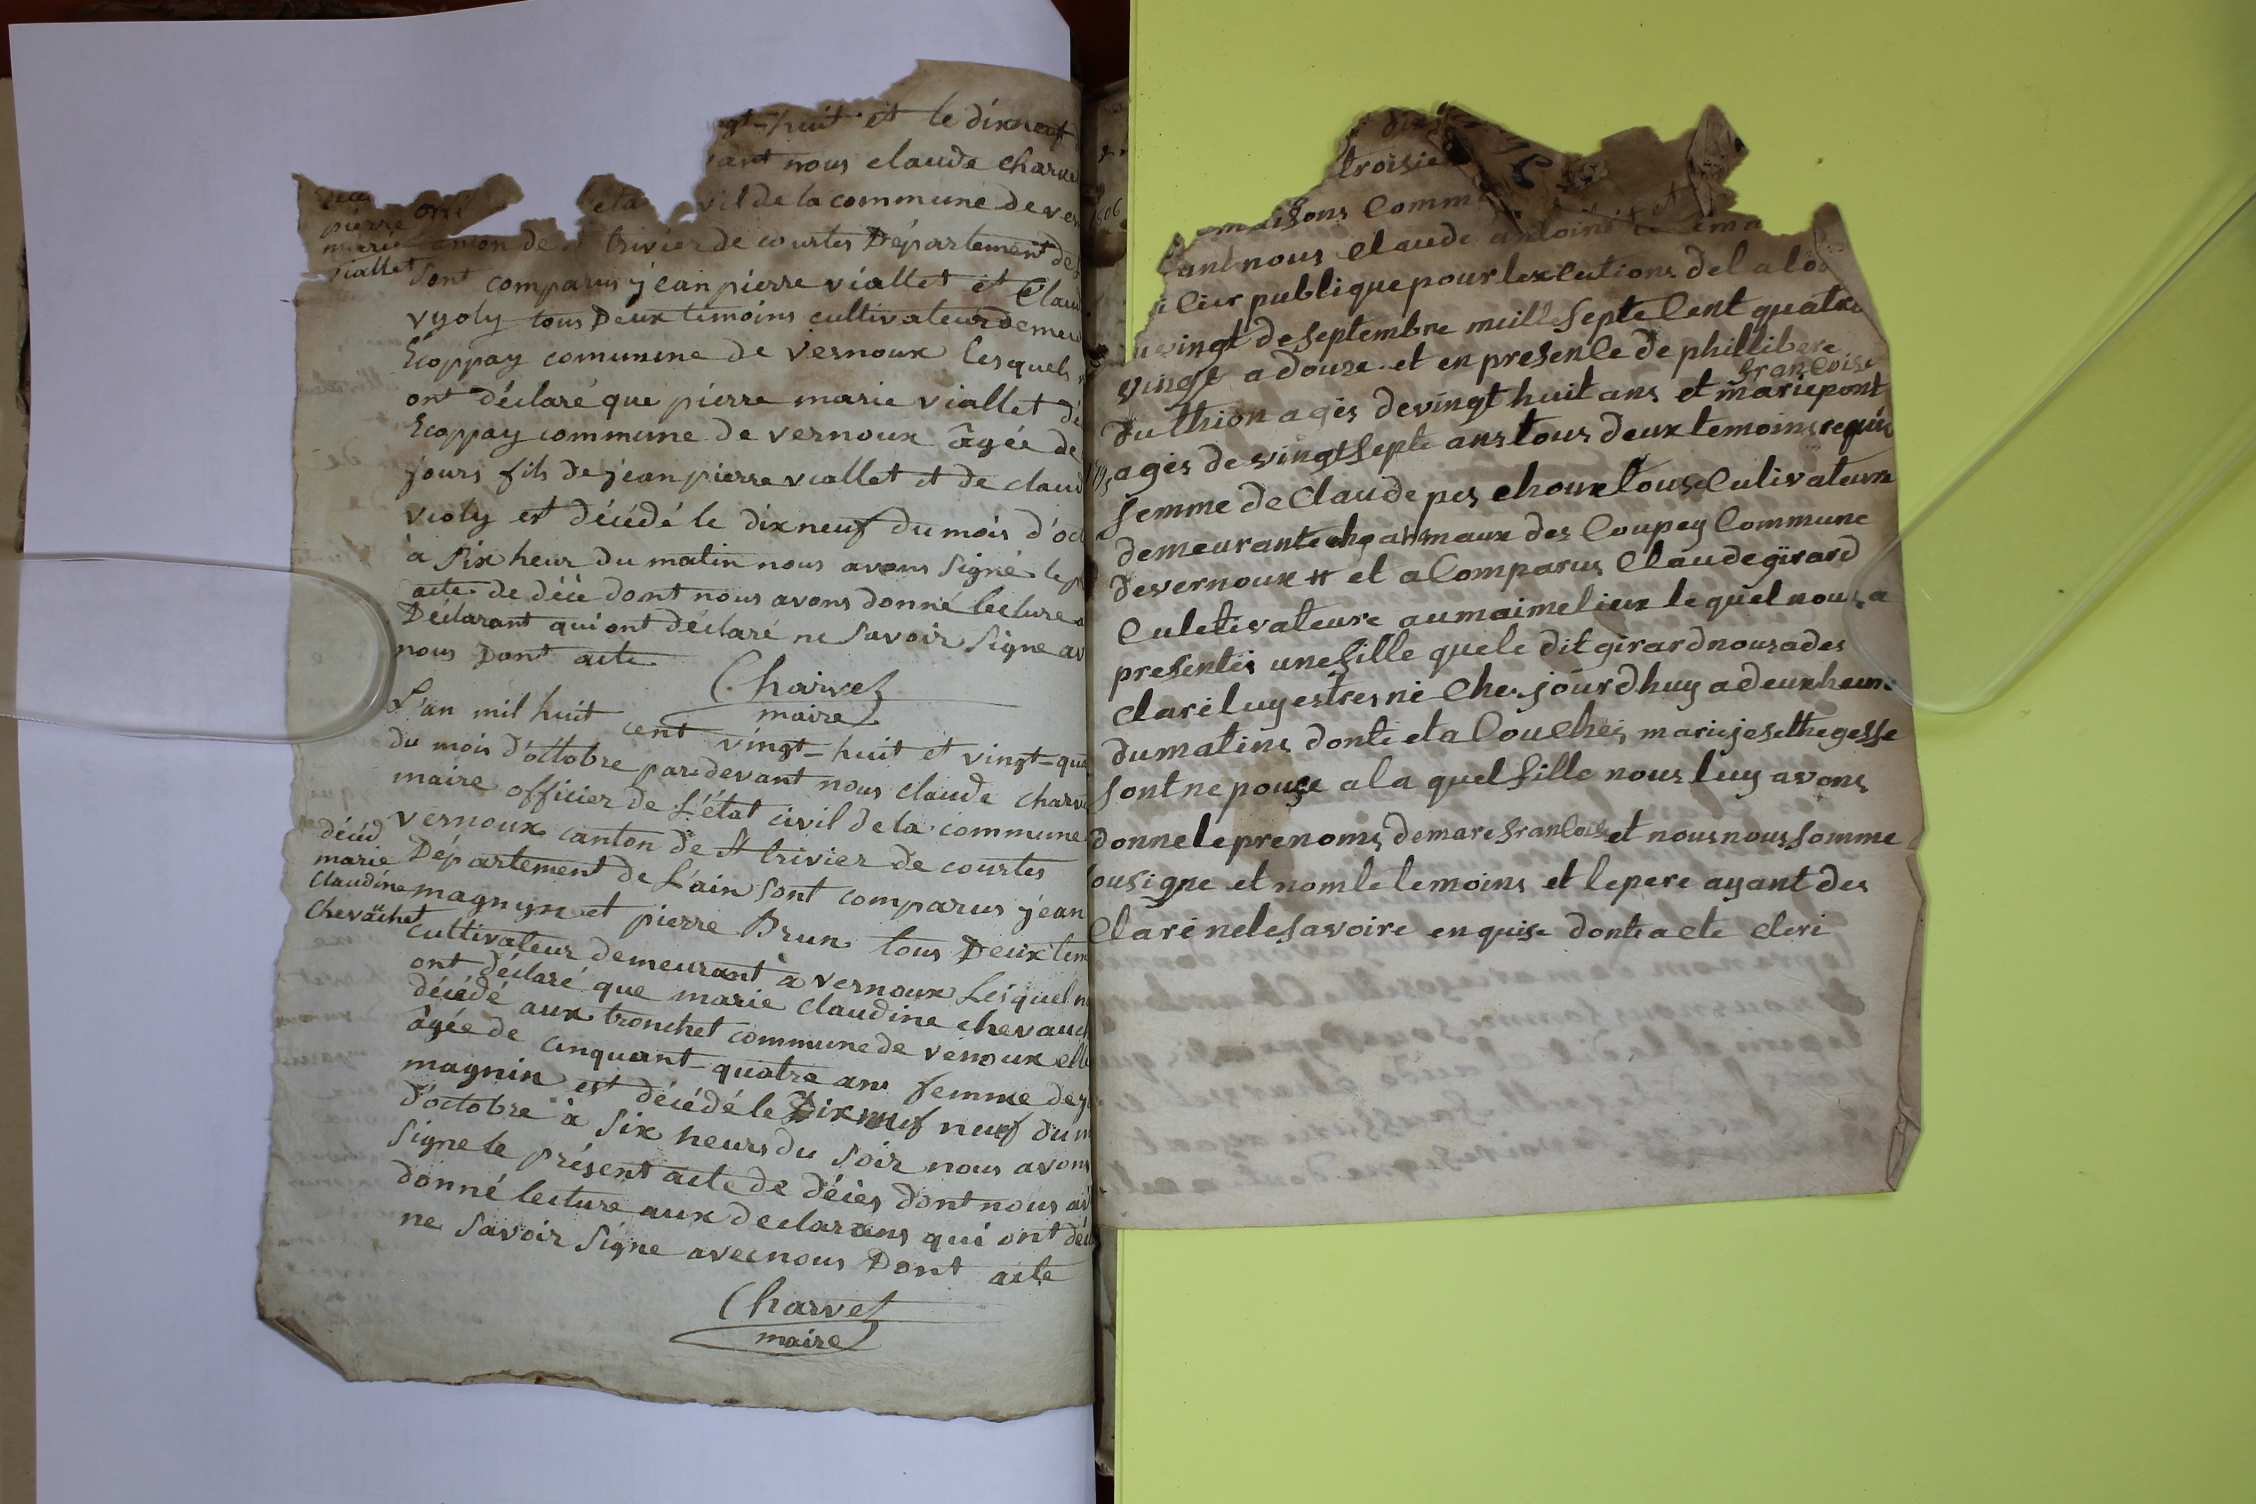 gt-huit et le dixneuf
ant nous claude charve
éta vil de la commune de ver
pierre
marie
viallet
anton de st trivier de courtes Département de
sont comparus jean pierre viallet et Claud
vyoly tous Deux temoins cultivateur demeu
Ecoppay comunne de vernoux lesquels
ont déclaré que pierre marie viallet dé
Ecoppay commune de vernoux âgée de
jours fils de jean pierre viallet et de claud
violy est décédé le dix neuf du mois d'oct
à six heur du matin nous avons signé le p
acte de décè dont nous avons donné lecture a
Déclarant qui ont déclaré ne savoir signe av
nous Dont acte
Charvet
maire
L'an mil huit cent vingt-huit et vingt-qua
du mois d'octobre par devant nous claude charv
maire officier de L'état civil de la commune
vernoux canton de st trivier de courtes
décéd
marie
claudine
chevachet
Département de L'ain sont comparus jean
magnyn et pierre Brun tous Deux tem
cultivateur demeurant à vernoux Lesquel n
ont déclaré que marie claudine chevauch
décédé aux tronchet commune de vernoux elle
âgée de cinquant-quatre ans femme de j
magnin est décédé le Dix neuf neuf du m
d'octobre à six heurs du soir nous avons
signe le présent acte de décès dont nous av
donné lecture aux declarans qui ont décl
ne savoir signe avec nous Dont acte
Charvet
maire
troisie
maisons Comm
ant nous Claude antoine
icier publique pour lexcutions del a lo
vingt de septembre mille septe Cent quatre
vingt a douze et en presence de phillibere
francoise
du thion agés de vingt huit ans et marie pont
agés de vingt septe ans tous deux temoins requis
femme de Claude pes choux tous Cultivateurs
demeurante des Coupey Commune
de vernoux et a Comparus Claude girard
Culetivateure au maime lieux le quel nous a
presentés une fille que le dit girard nous a des
clare luy estres né Che jourdhuy a deux heure
du matins donte et a Couches marie jesethe gesse
sont ne pouse a la quel fille nous luy avons
donne le prenoms de mare francoise et nous nous somme
ousigne et nom le temoins et le pere ayant des
Clare ne le savoire en quise donte acte